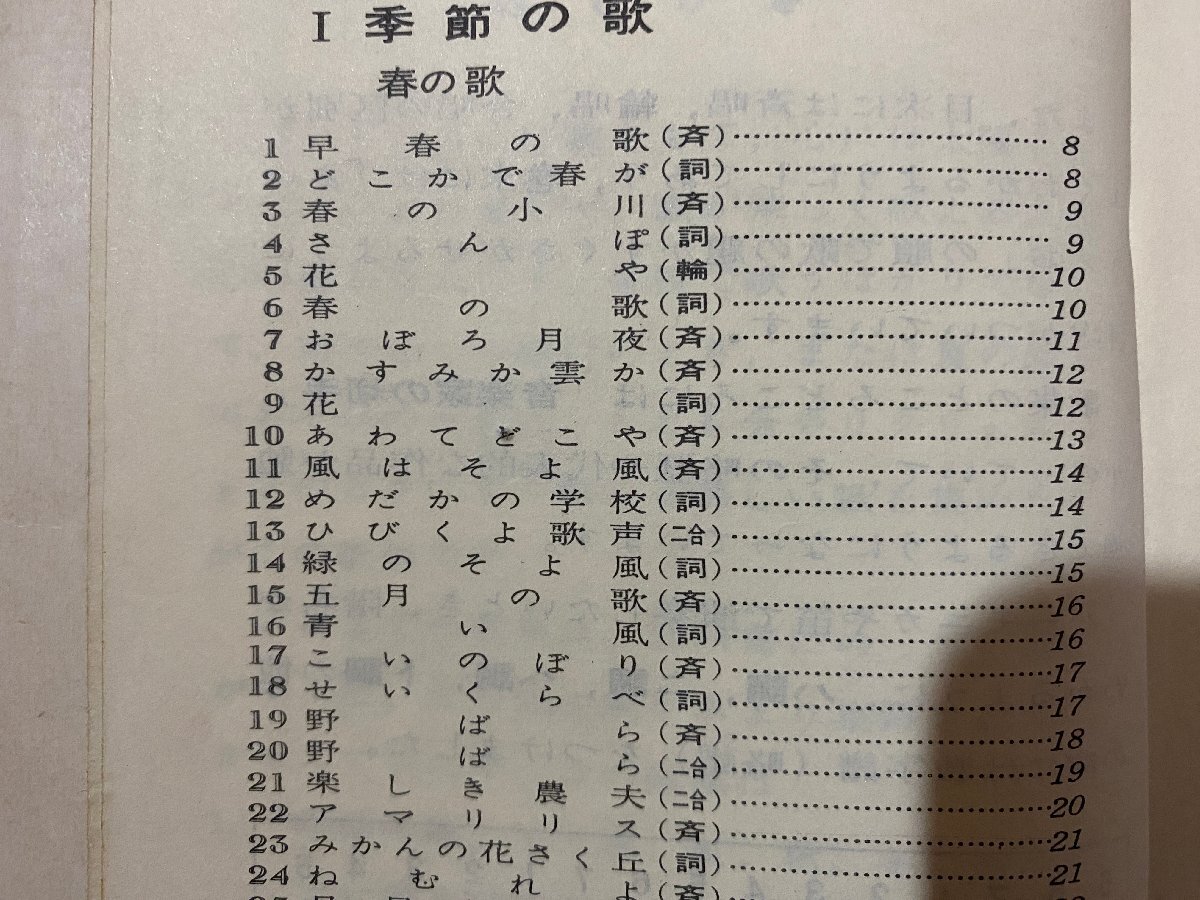 I 季節の歌
春の歌
1 早春の歌(斉)……………………8
2 どこかで春が(詞)……………………8
3 春の小川(斉)……………………9
4 さんぽ(詞)……………………9
5 花や(輪)……………………10
6 春の歌(詞)……………………10
7 おぼろ月夜(斉)……………………11
8 かすみか雲か(斉)……………………12
9 花(詞)……………………12
10 あわてどこや(斉)……………………13
11 風はそよ風(斉)……………………14
12 めだかの学校(詞)……………………14
13 ひびくよ歌声(二合)……………………15
14 緑のそよ風(詞)……………………15
15 五月の歌(斉)……………………16
16 青い風(詞)……………………16
17 こいのぼり(斉)……………………17
18 せいくらべ(詞)……………………17
19 野ばら(斉)……………………18
20 野ばら(二合)……………………19
21 楽しき農夫(二合)……………………20
22 アマリリス(斉)……………………21
23 みかんの花さく丘(詞)……………………21
24 ねむれよ(斉)